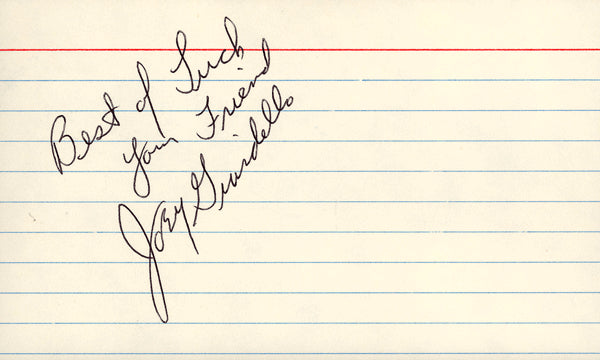 Best of Luck
Your Friend
Joey Giardello